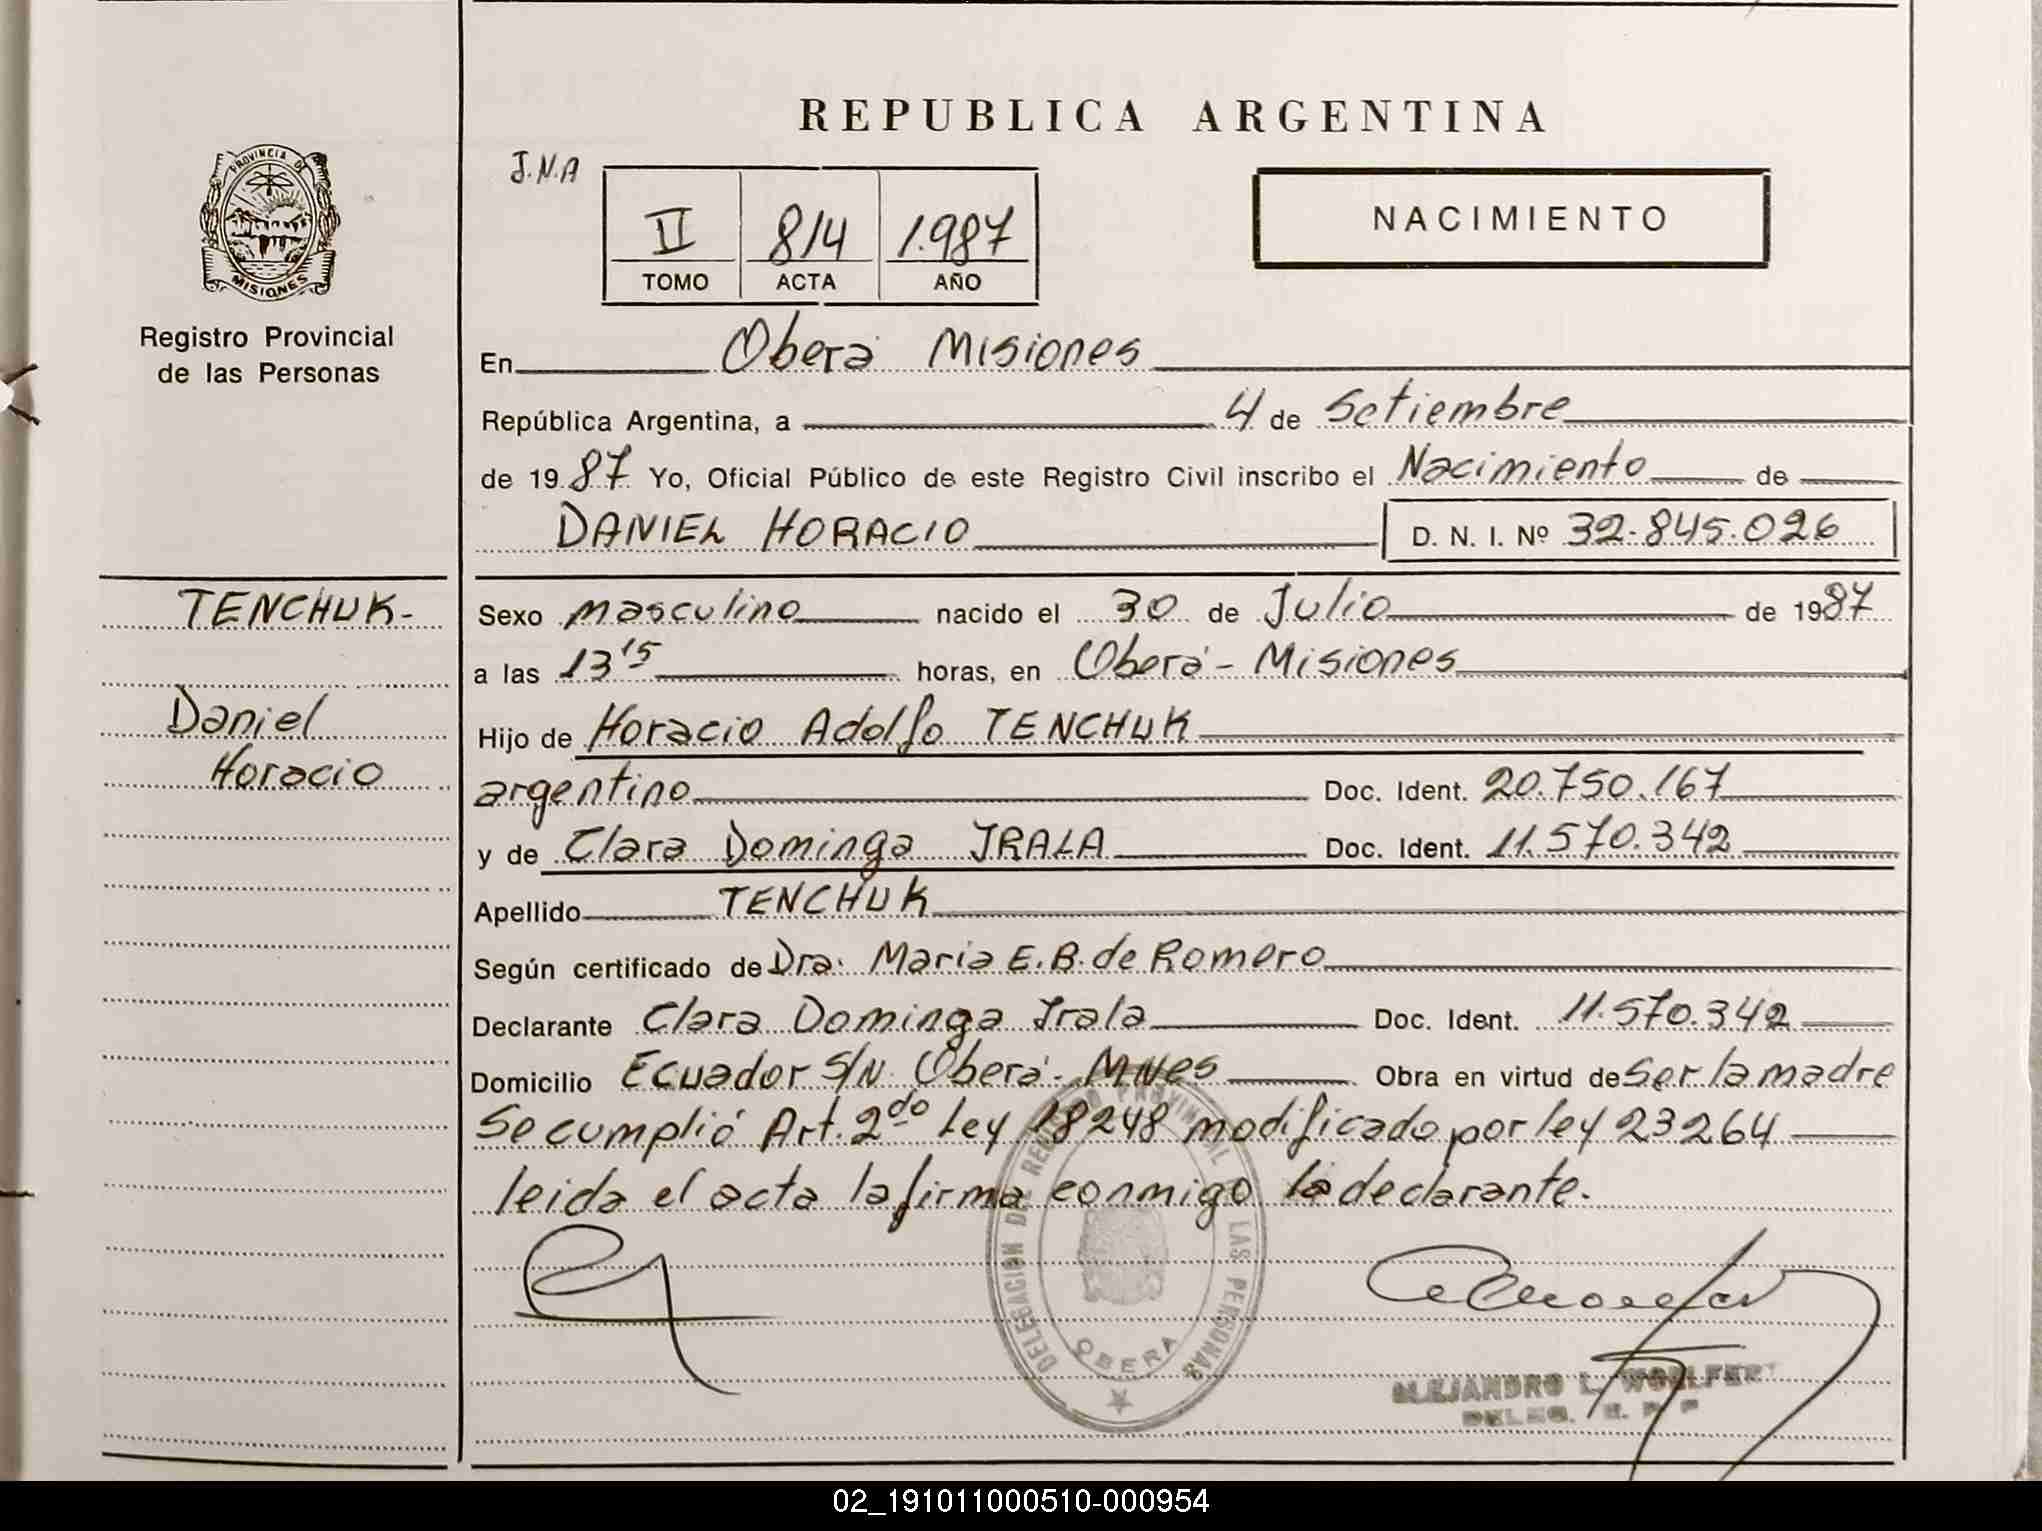 REPUBLICA ARGENTINA
J.N.A
II 814 1.987
TOMO ACTA AÑO
NACIMIENTO
PROVINCIA DE
MISIONES
Registro Provincial
de las Personas
TENCHUK-
Daniel
Horacio
En Oberá Misiones
República Argentina, a 4 de Setiembre
de 1987 Yo, Oficial Público de este Registro Civil inscribo el Nacimiento de
DANIEL HORACIO D. N. I. Nº 32.845.026
Sexo masculino nacido el 30 de Julio de 1987
a las 13'15 horas, en Oberá - Misiones
Hijo de Horacio Adolfo TENCHUK
argentino Doc. Ident. 20.750.167
y de Clara Dominga IRALA Doc. Ident. 11.570.342
Apellido TENCHUK
Según certificado de Dra. Maria E.B. de Romero
Declarante Clara Dominga Irala Doc. Ident. 11.570.342
Domicilio Ecuador S/N Oberá - MNes Obra en virtud de ser la madre
Se cumplió Art. 2do Ley 18248 modificado por ley 23264
leida el acta la firma conmigo la declarante.
DELEGACION DEL REGISTRO PROVINCIAL DE LAS PERSONAS
OBERA
ALEJANDRO L. WOHLFERT
DELEG. R. P. P
02_191011000510-000954